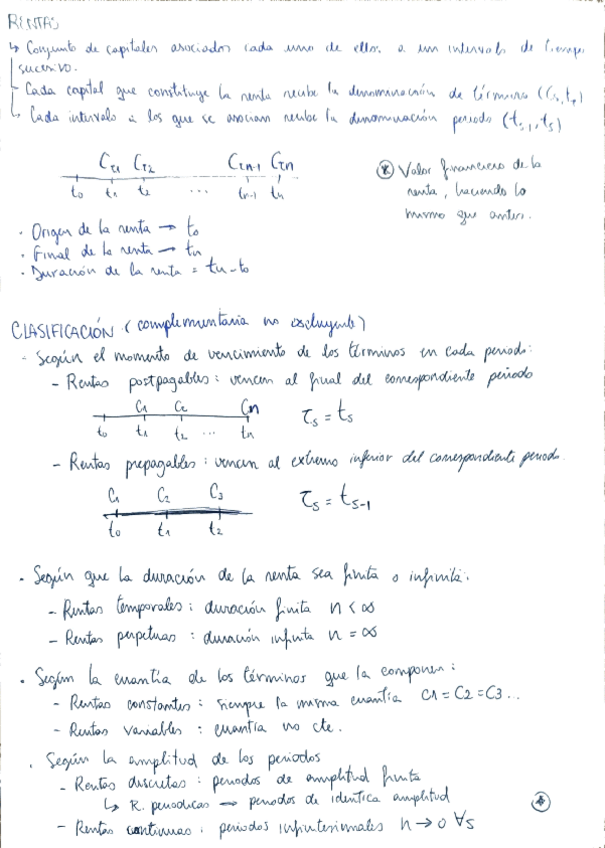 RENTAS
↳ Conjunto de capitales asociados cada uno de ellos a un intervalo de tiempo
sucesivo.
- Cada capital que constituye la renta recibe la denominación de término (Cs, τs)
↳ Cada intervalo a los que se asocian recibe la denominación periodo (ts-1, ts)
Cτ1 Cτ2 Cτn-1 Cτn
t0 t1 t2 ... tn-1 tn
* Valor financiero de la
renta, haciendo lo
mismo que antes.
· Origen de la renta → t0
· Final de la renta → tn
· Duración de la renta = tn - t0
CLASIFICACIÓN (complementaria no excluyente)
- Según el momento de vencimiento de los términos en cada periodo:
- Rentas postpagables: vencen al final del correspondiente periodo
C1 C2 Cn
t0 t1 t2 ... tn
τs = ts
- Rentas prepagables: vencen al extremo inferior del correspondiente periodo.
C1 C2 C3
t0 t1 t2
τs = ts-1
· Según que la duración de la renta sea finita o infinita:
- Rentas temporales: duración finita n < ∞
- Rentas perpetuas: duración infinita n = ∞
· Según la cuantía de los términos que la componen:
- Rentas constantes: siempre la misma cuantía C1 = C2 = C3 ...
- Rentas variables: cuantía no cte.
· Según la amplitud de los periodos
- Rentas discretas: periodos de amplitud finita
↳ R. periodicas → periodos de identica amplitud
- Rentas continuas: periodos infinitesimales h → 0 ∀s
*